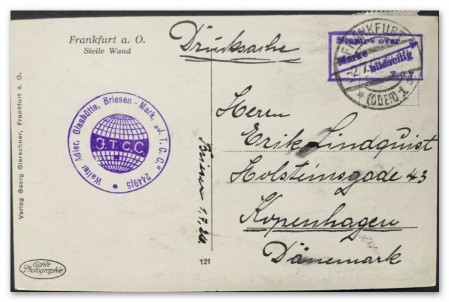 Frankfurt a. O.
Steile Wand
Drucksache
FRANKFURT
(ODER) 1
Stamps over
Marke
bildseitig
T.C.V.
Walter Adler, Glashütte, Briesen - Mark, „J. T. C. C." 2449/5
J.T.C.C
Herrn
Erik Lindquist
Holsteinsgade 43
Kopenhagen
Dänemark
Briesen 1.7.
Verlag Georg Gierschner, Frankfurt a. O.
121
Echte
Photographie